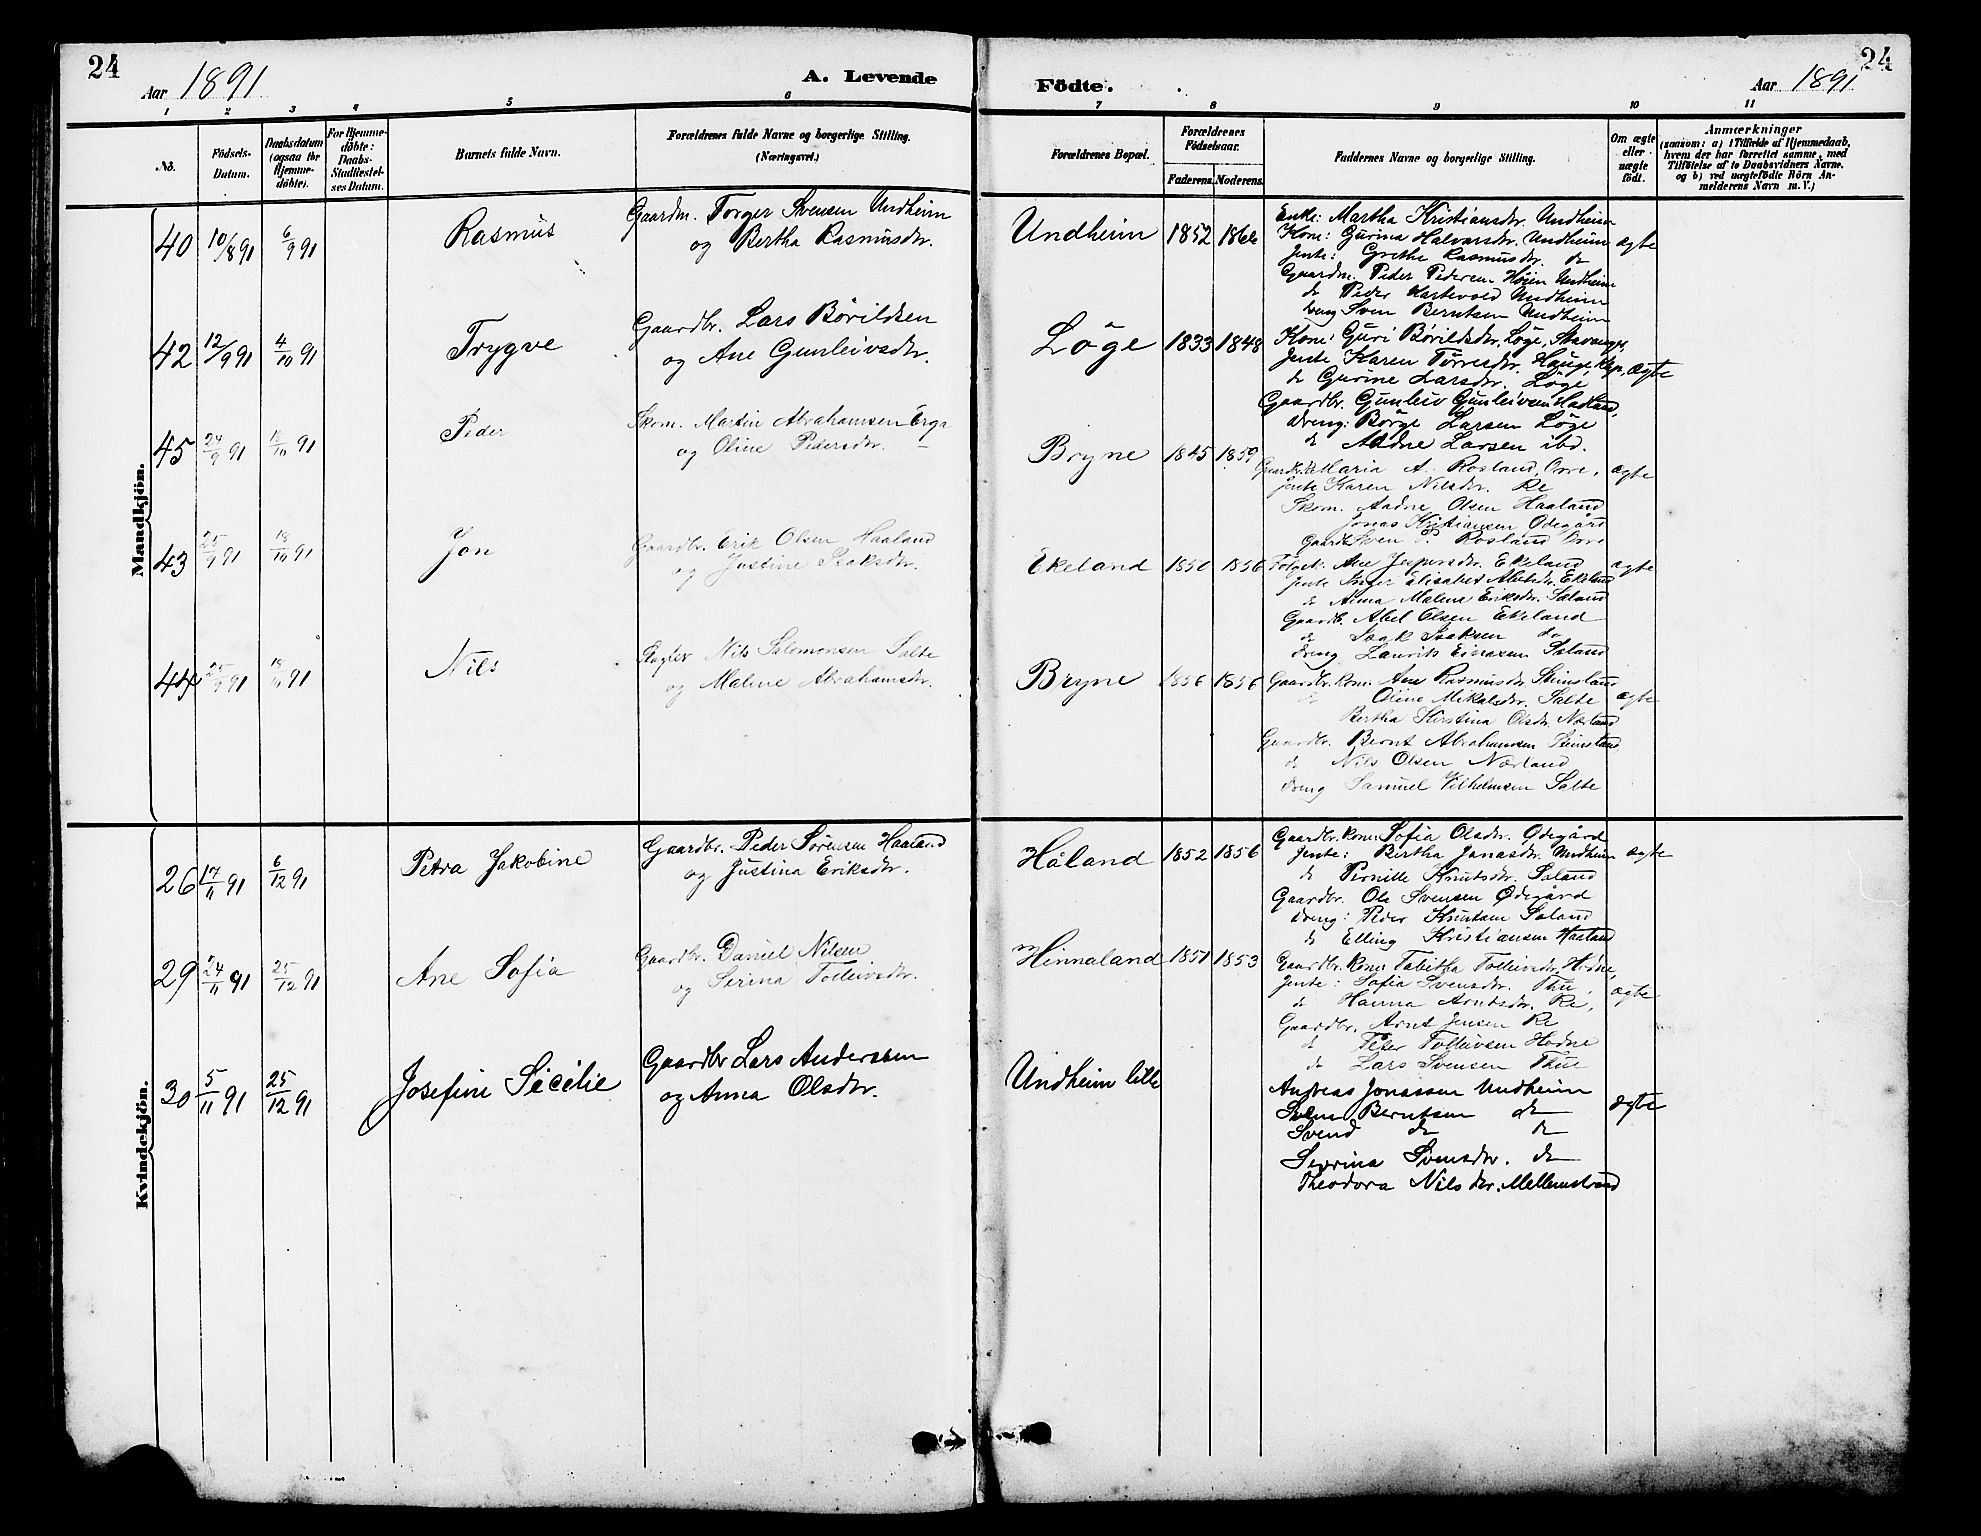 24
Aar 1891
A. Levende
1 2 3 4 5 6
No.
Födsels-
Datum.
Daabsdatum
(ogsaa for
Hjemme-
döbte).
For Hjemme-
döbte:
Daabs-
Stadfæstel-
ses Datum.
Barnets fulde Navn.
Forældrenes fulde Navne og borgerlige Stilling.
(Næringsvei.)
Födte.
Aar 1891
24
7 8 9 10 11
Forældrenes Bopæl.
Forældrenes
Födselsaar.
Faderens. Moderens.
Faddernes Navne og borgerlige Stilling.
Om ægte
eller
uægte
født.
Anmærkninger
(saasom: a) i Tilfælde af Hjemmedaab,
hvem der har forrettet samme, med
Tilföielse af to Daabsvidners Navne.
og b) ved uægtefödte Börn An-
melderens Navn m. V.)
Mandkjön.
40 10/8 91 6/9 91 Rasmus
Gaardm. Torger Svensen Undheim
og Bertha Rasmusdr.
Undheim 1852 1866
Enke: Martha Kristiansdr. Undheim
Kone: Gurina Halvarsdr. Undheim ægte
Jente: Grethe Rasmusdr. do
Gaardm. Peder Pedersen Höjen Undheim
do Peder Hartevold Undheim
Dreng Sven Berntsen Undheim
42 12/9 91 4/10 91 Trygve
Gaardbr. Lars Börildsen
og Ane Gunleivsdr.
Löge 1833 1848
Kone: Guri Börildsdr. Löge, Stavanger,
Jente Karen Törresdr. Hauge, Klep, ægte
do Gurine Larsdr. Löge
Gaardbr. Gunleiv Gunleivsen Hadland,
Dreng: Börge Larsen Löge
do Adne Larsen ibd.
45 24/9 91 18/10 91 Peder
Skom. Martin Abrahamsen Erga
og Oline Pedersdr.
Bryne 1845 1859
Gaardbr.k. Maria A. Rosland, Orre, ægte
Jente Karen Nilsdr. Re
Skom. Aadne Olsen Haaland
Jonas Kristiansen Ødegård
Gaardbr. Sven P. Rosland Orre
43 25/9 91 18/10 91 Jon
Gaardbr. Erik Olsen Haaland
og Justine Isaksdr.
Ekeland 1850 1856
Følgek. Ane Jespersdr. Ekeland ægte
Jente Inger Elisabet Abelsdr. Ekeland
do Anna Malene Eriksdr. Saland
Gaardb. Abel Olsen Ekeland
do Isak Isaksen do
Dreng Lauvik Einarsen Saland
44 25/9 91 18/10 91 Nils
Slagter Nils Salomonsen Salte
og Malene Abrahamsdr.
Bryne 1856 1856
Gaardbr. kone: Ane Rasmusdr Steinsland
do Oline Mikalsdr. Salte ægte
Bertha Kirstina Olsdr. Nærland
Gaardbr. Bernt Abrahamsen Steinsland
do Nils Olsen Nærland
Dreng Samuel Vilhelmsen Salte
Kvindekjön.
26 17/11 91 6/12 91 Petra Jakobine
Gaardbr. Peder Sørensen Haaland
og Justina Eriksdr.
Håland 1852 1856
Gaardbr. kone: Sofia Olsdr. Ødegård
Jente: Bertha Jonasdr. Undheim ægte
do Pernille Knutsdr. Saland
Gaardbr. Ole Svensen Ødegård
Dreng: Peder Knutsen Saland
do Elling Kristiansen Haaland
29 24/11 91 25/12 91 Ane Sofia
Gaardbr. Daniel Nilsen
og Serina Tolleivsdr.
Hinnaland 1851 1853
Gaardbr. kone: Tabitha Tolleivsdr. Hodne,
Jente: Sofia Svensdr. Thu, ægte
do Hanna Arntsdr. Re,
Gaardbr. Arnt Jensen Re
do Peter Tolleivsen Hodne
do Lars Svensen Thue
30 5/11 91 25/12 91 Josefine Sicelie
Gaardbr Lars Anderssen
og Anna Olsdtr.
Undheim lille
Andreas Jonassen Undheim
Berntsen do ægte
Svend do do
Serina Svensdtr. do
Theodora Nilsdtr. Mellemstrand